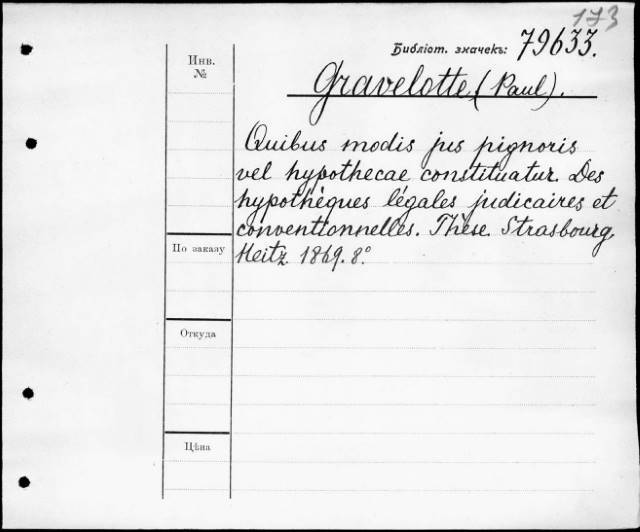 173
Библіот. значекъ: 79633.
Инв.
№
Gravelotte (Paul).
Quibus modis jus pignoris
vel hypothecae constituatur. Des
hypothèques légales judicaires et
conventionnelles. Thèse. Strasbourg,
Heitz 1869. 8°.
По заказу
Откуда
Цѣна